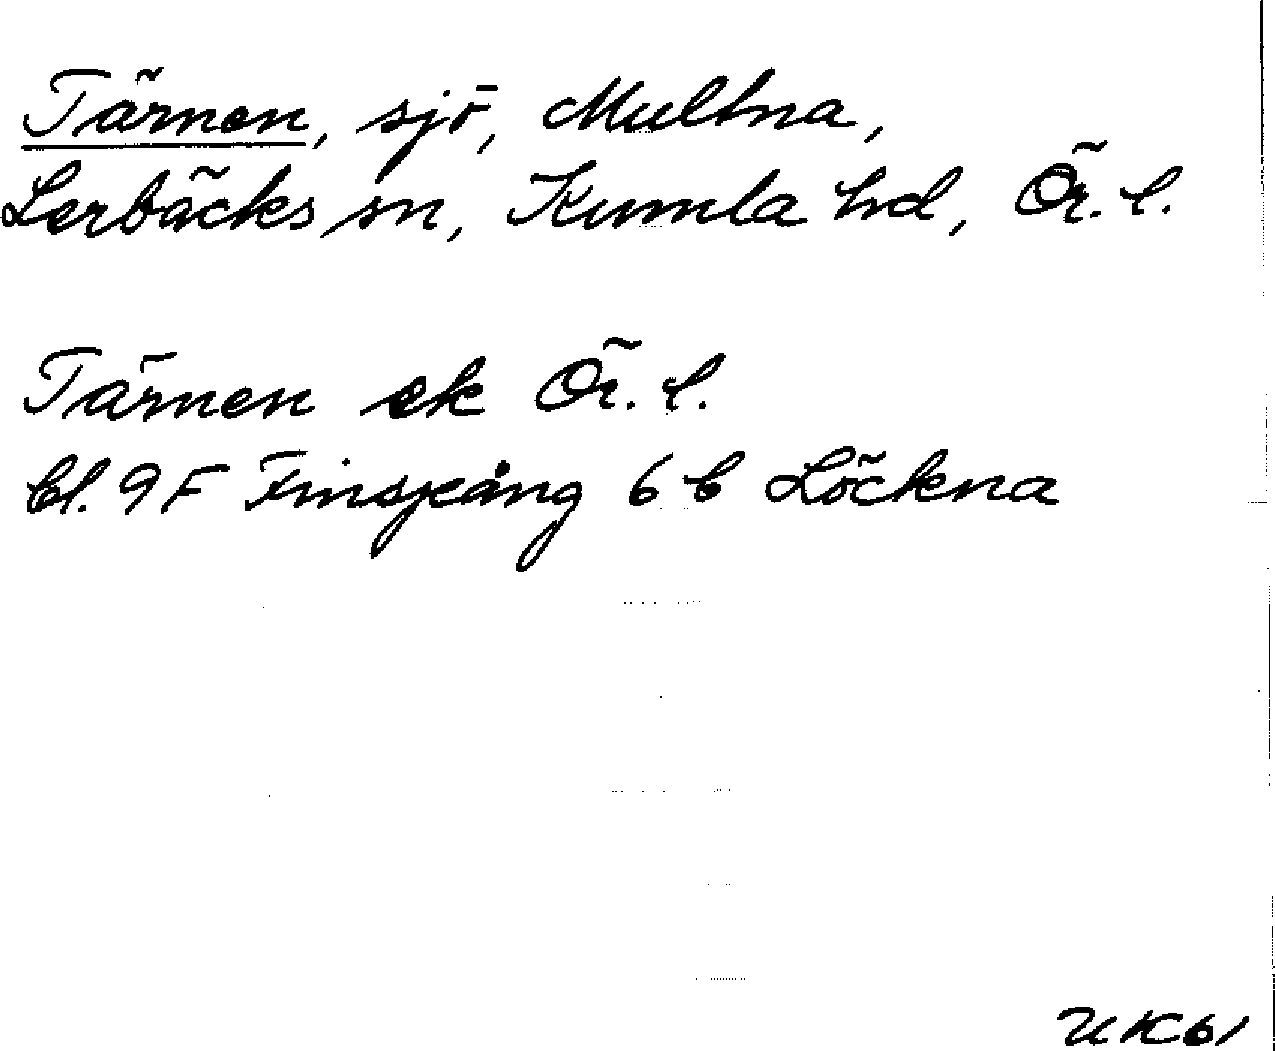 Tärnen, sjö, Multna,
Lerbäcks sn, Kumla hd, Ör. l.
Tärnen ek Ör. l.
bl. 9F Finspång 6 b Löckna
UK61